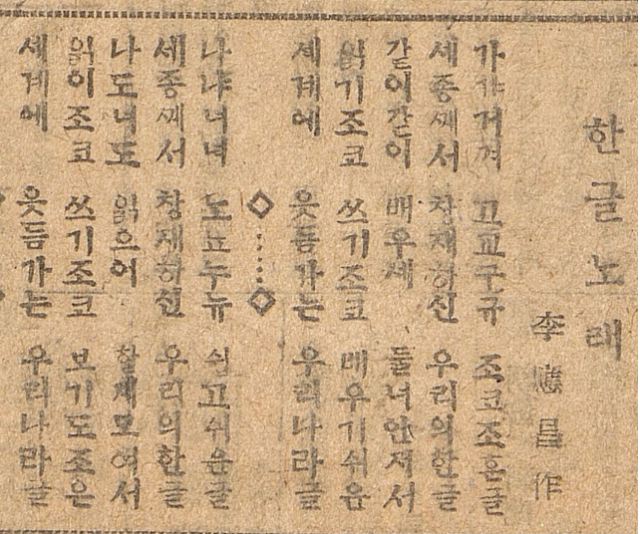 한글노래
李應昌作
가갸거겨 고교구규 조코조흔글
세종께서 창제하신 우리의한글
같이같이 배우세 둘너안저서
읽기조코 쓰기조코 배우기쉬움
세계에 웃듬가는 우리나라글
나냐너녀 노뇨누뉴 쉽고쉬운글
세종께서 창제하신 우리의한글
나도너도 읽으어 모여서
읽이조코 쓰기조코 보기도조은
세계에 웃듬가는 우리나라글